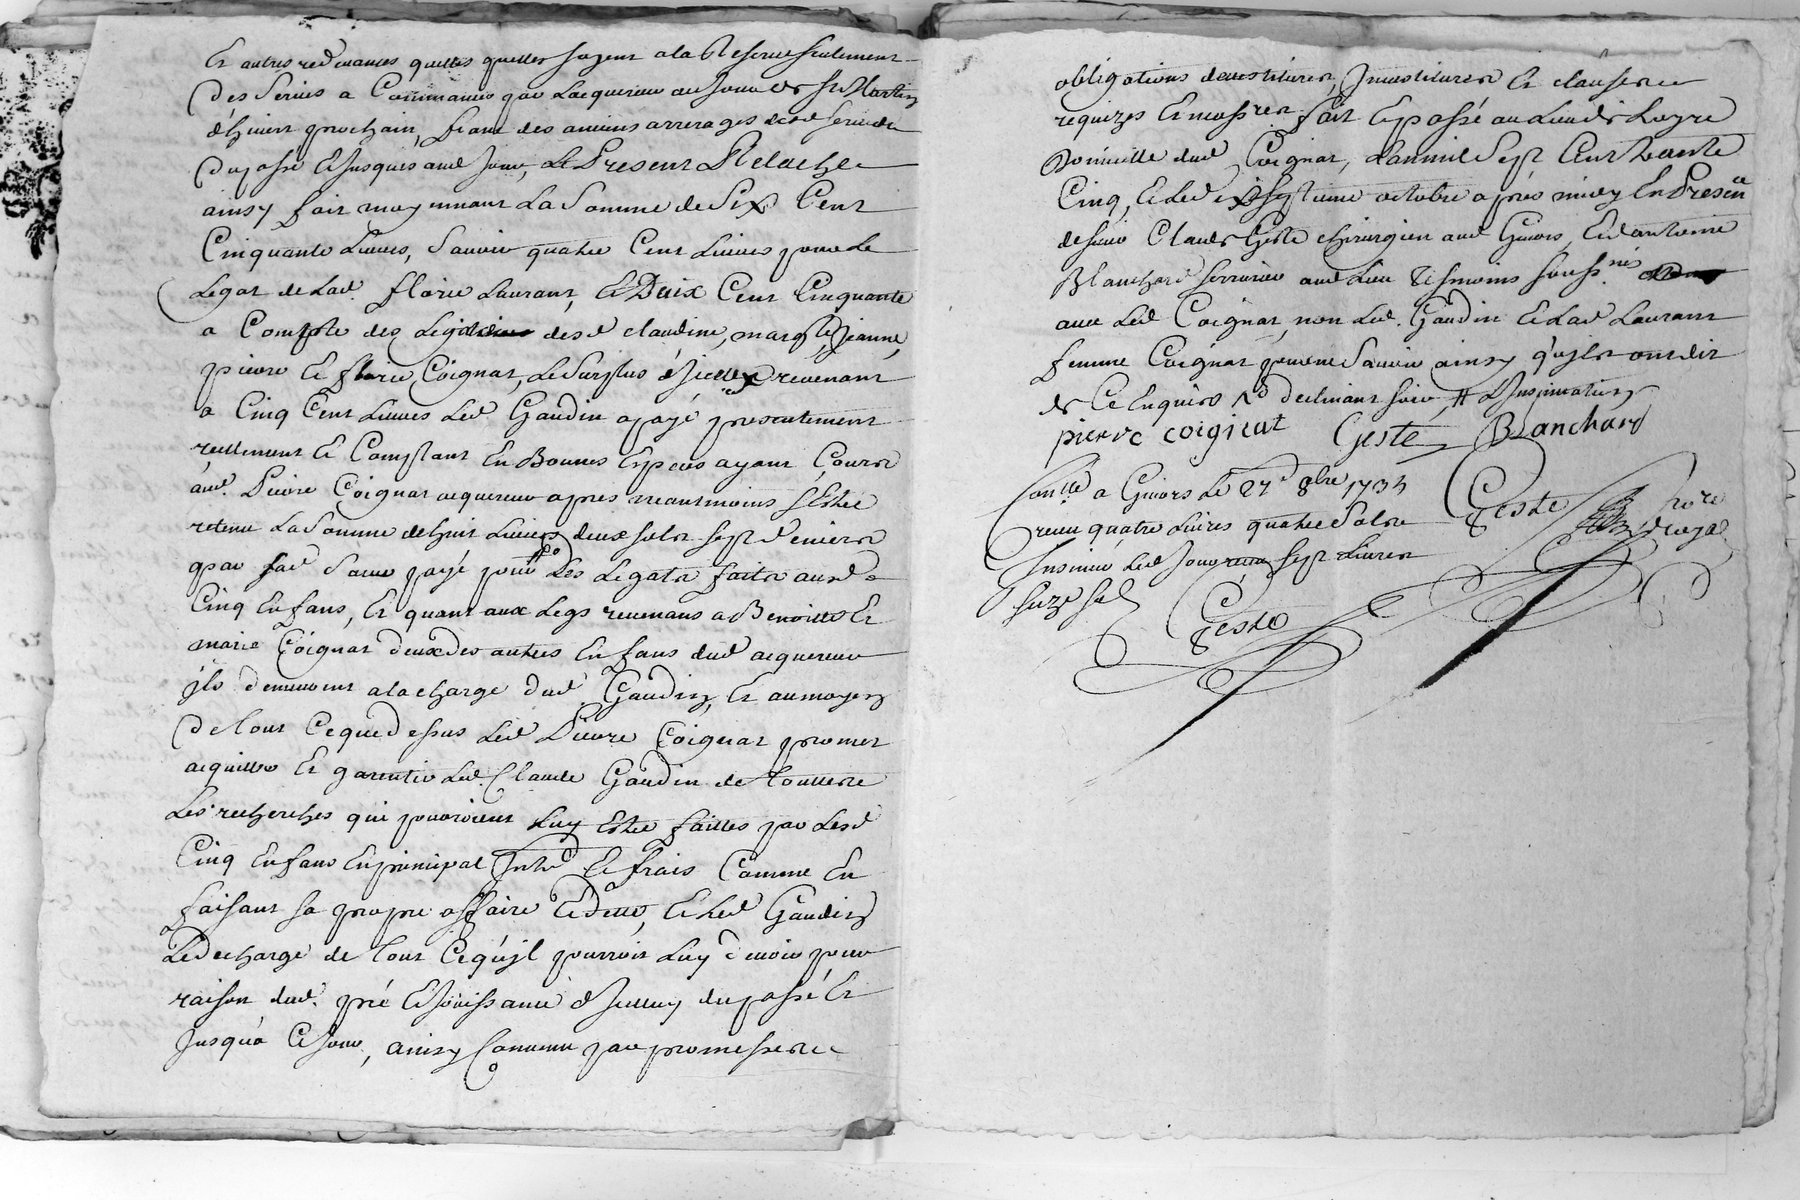 Et autres redevances quelles quelles soyent a la Reserve seulement
Des Servis a Commancer par Lacquereur au Jour de St Martin
d'hiver prochain, franc des anciens arrerages desd servis du
Du passé Et Jusques aud Jour, Le Present Relache
ainsy fait moyennant La Somme de Six Cent
Cinquante Livres, Sauoir quatre Cent Livres pour Le
Legat de Lad. florie Laurant, Et Deux Cent Cinquante
a Compte des Legats desd claudine, margte, Jeanne,
pierre Et florie Coignat, Le Surplus d'Jceux revenant
a Cinq Cent Livres Led Gaudin a payé presentement
reellement Et Comptant En Bonnes Especes ayant Cours
aud. Pierre Coignat acquereur apres neantmoins s'Estre
retenu La Somme de huit Livres deux sols sept deniers
par Lad Somme payé pour Les Legats faits ausd
Cinq Enfans, Et quant aux Legs revenans a Benoitte Et
marie Coignat deux des autres Enfans dud acquereur
jls demeurent a la charge dud Gaudin, Et au moyen
De tout Ceque Dessus Led Pierre Coignat promet
acquitter Et garentir Led. Claude Gaudin de touttes
Les recherches qui pouroient Luy Estre faittes par Lesd
Cinq Enfans En principal Intds Et frais Comme En
faisant sa propre affaire Et dette, Et Led Gaudin
Le decharge de tout Ce qu'jl pourroit Luy devoir pour
raison dud. pré Et Jouissance d'Jcelluy du passé Et
Jusqu'a Ce Jour, ainsy Convenu par promesses
obligations devestitures, Jnvestitures Et clauses
requizes Et necessres fait Et passé au Lieu de Loyre
Domicille dud Coignat, L'an mil Sept Cent trente
Cinq, Et Led vingt Septieme octobre apres midy En Presence
de sieur Claude Geste chirurgien aud Givors, Et d'antoine
Blanchard serrurier aud Lieu tesmoins souss.nés
avec Led Coignat, non Led. Gaudin Et Lad Laurant
femme Coignat pour ne Sauoir ainsy qu'jls ont dit
de Ce Enquis Et declinant soir, # d'Jnsinuation
pierre coignat Geste Blanchard
Conllé a Givors Le 27e 8bre 1735
receu quatre Livres quatre Sols Geste
Jnsinué Led Jour receu sept Livres
seize sols Geste